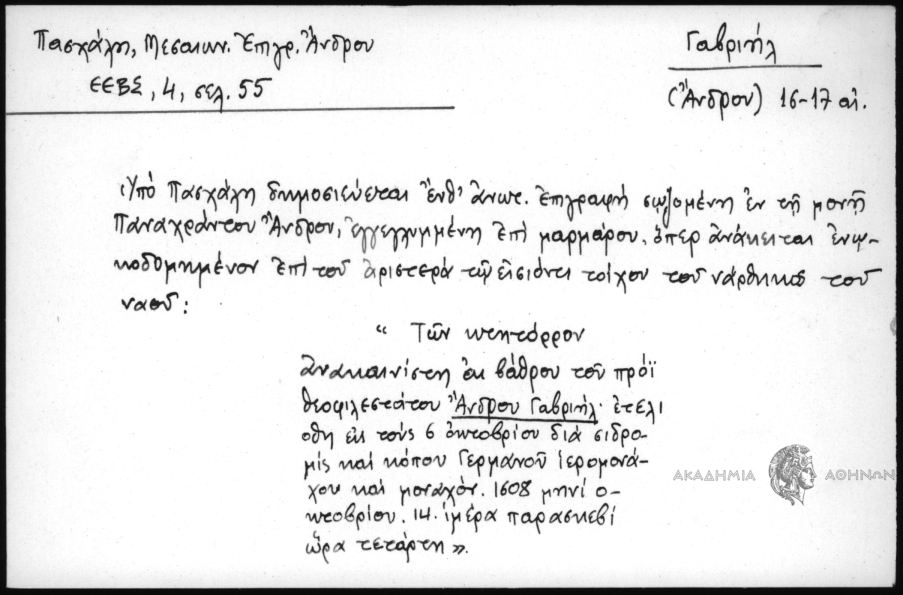 Πασχάλη, Μεσαιων. Ἐπιγρ. Ἄνδρου
ΕΕΒΣ, 4, σελ. 55
Γαβριήλ
(Ἄνδρου) 16-17 αἰ.
Ὑπό Πασχάλη δημοσιεύεται ἔνθ' ἀνωτ. Ἐπιγραφή σῳζομένη ἐν τῇ μονῇ
Παναχράντου Ἄνδρου, ἐγγεγλυμμένη ἐπί μαρμάρου, ὅπερ ἀνάκειται ἐνῳ-
κοδομημένον ἐπί τοῦ ἀριστερᾷ τῷ εἰσιόντι τοίχου τοῦ νάρθηκος τοῦ
ναοῦ:
" Τῶν κτητόρρον
ἀνακαινίστη ἐκ βάθρου τοῦ πρόϊ
θεοφιλεστάτου Ἄνδρου Γαβριήλ· ἐτελι
οθη εἰκ τούς 6 ὀκτοβρίου διά σιδρο-
μίς καί κόπου Γερμανοῦ ἱερομονά-
χου καί μοναχόν. 1608 μηνί ο-
κτοβρίου. 14. ἰμέρα παρασκεβί
ὥρα τετάρτη ».
ΑΚΑΔΗΜΙΑ ΑΘΗΝΩΝ